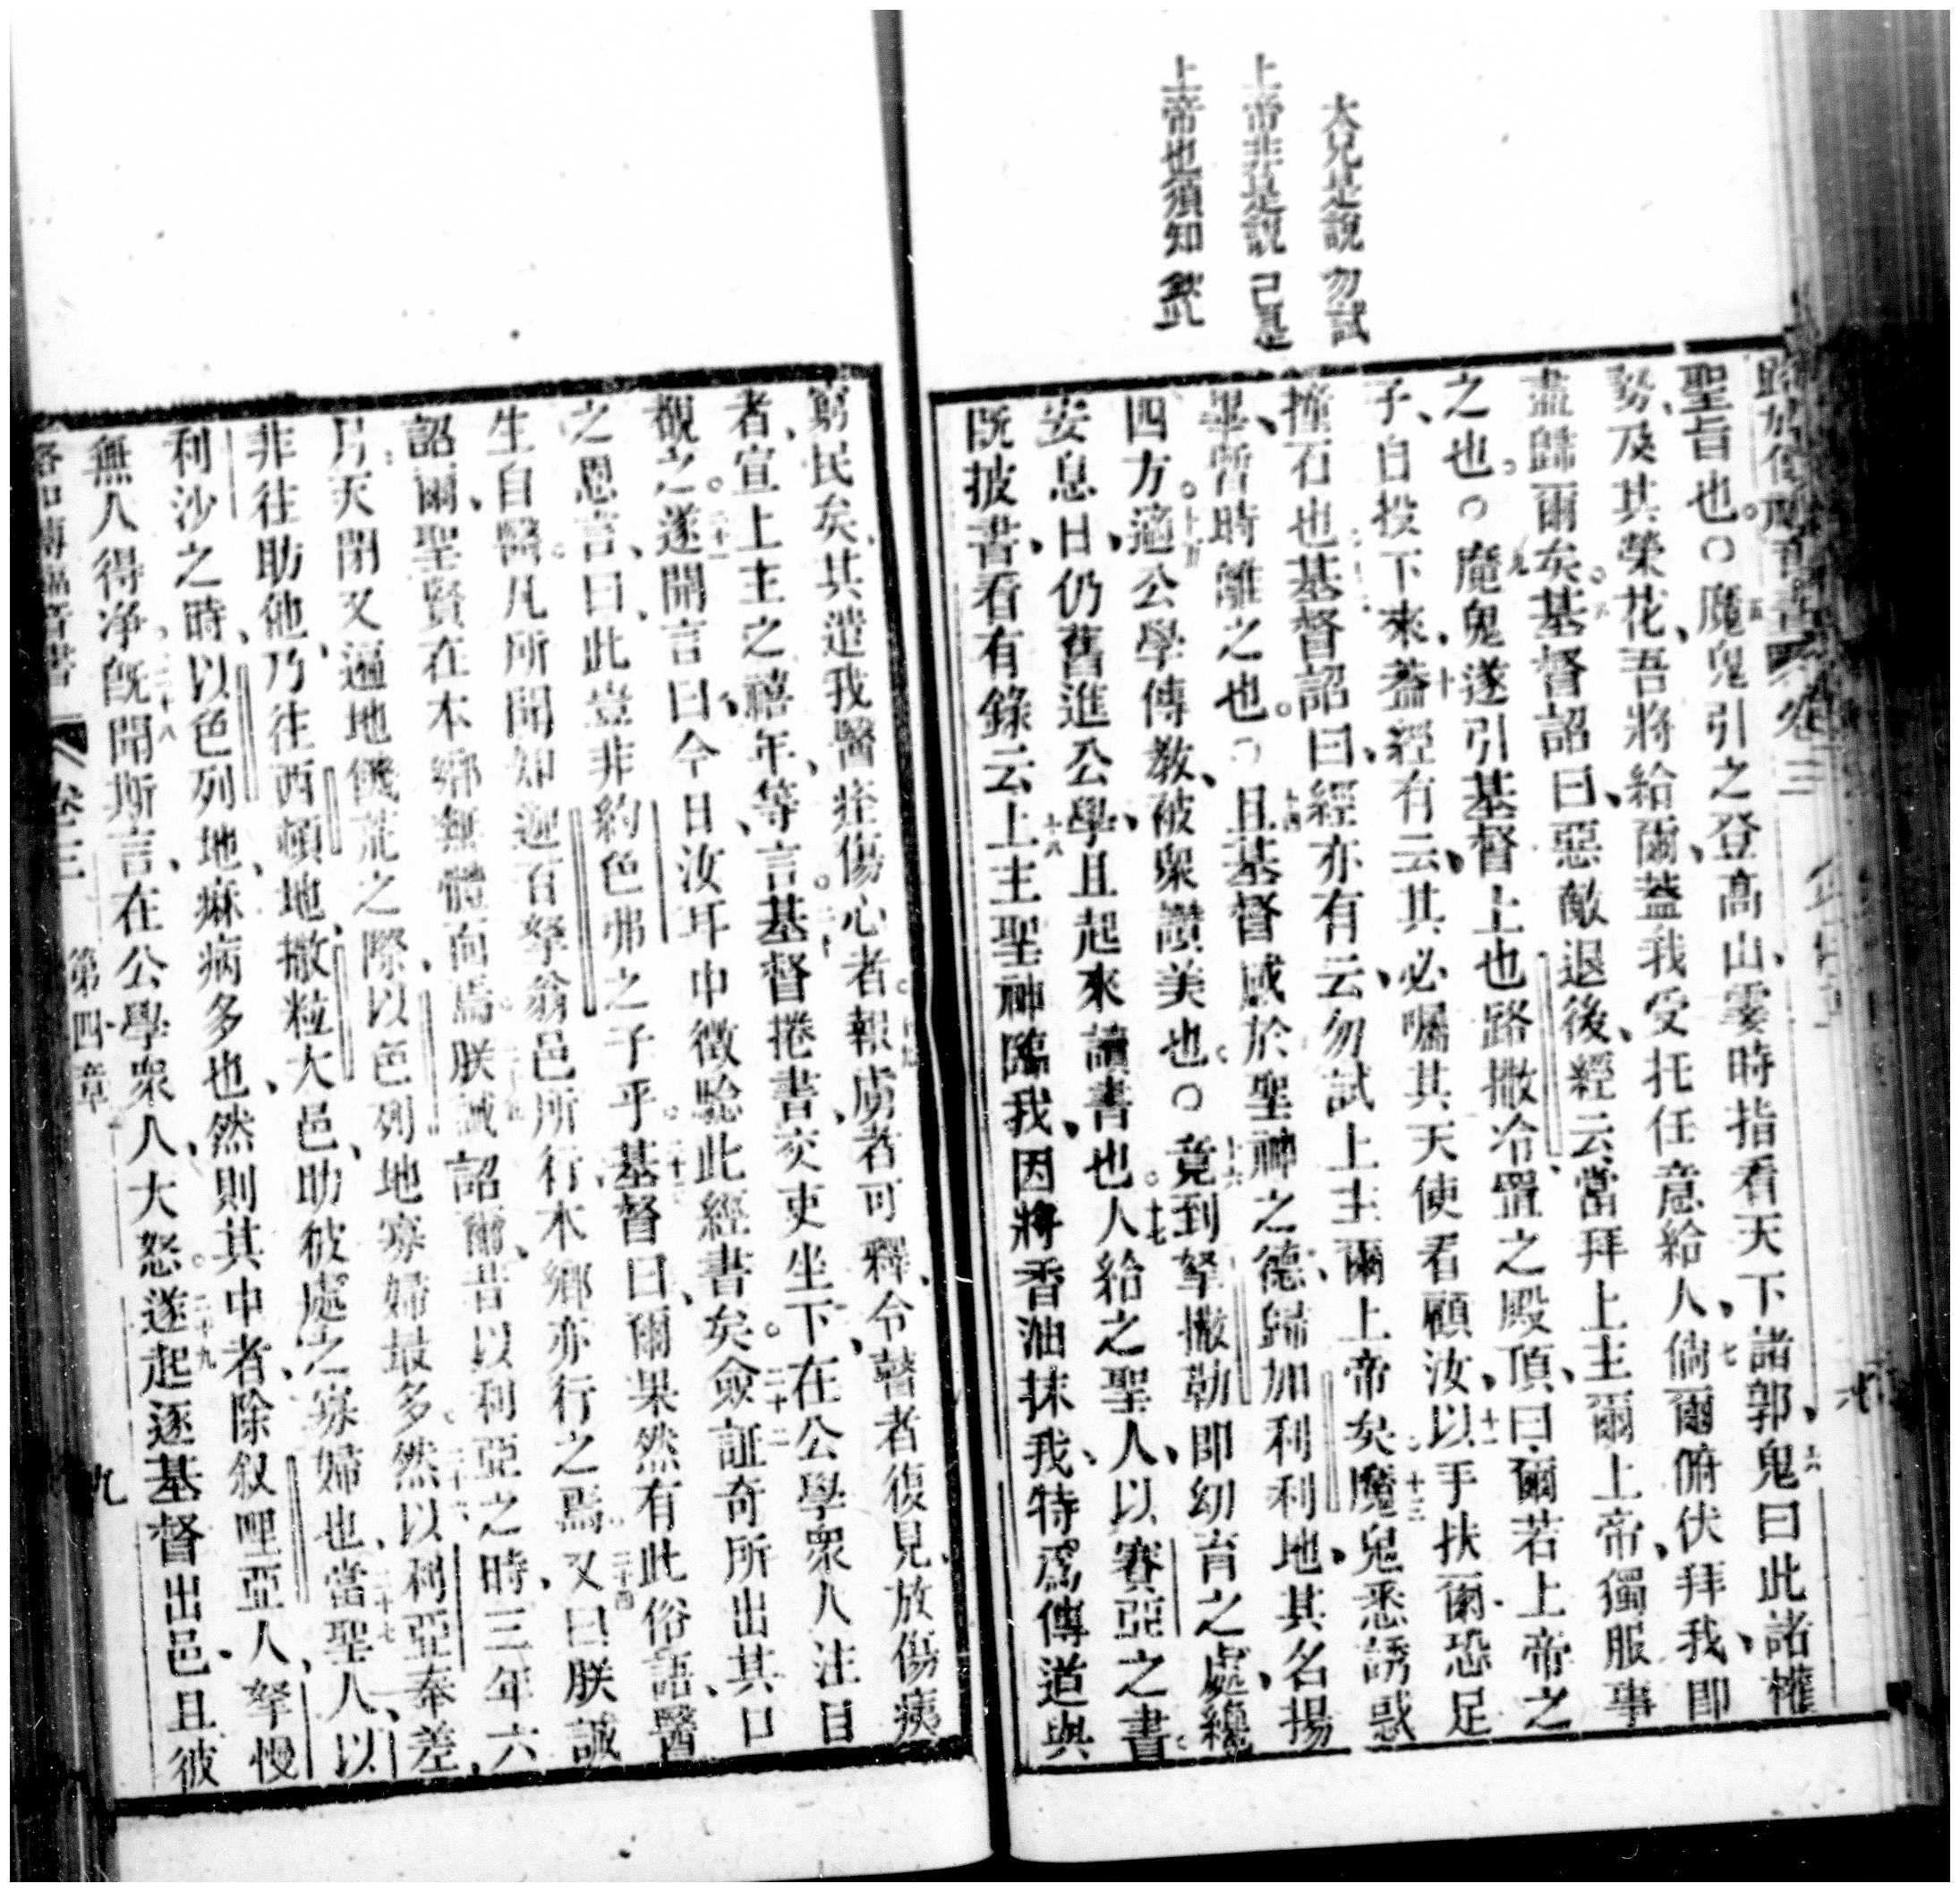 大兄是說勿試
上帝非是說己是
上帝也須知欽此
聖旨也○五魔鬼引之登高山、霎時指看天下諸郭、六鬼曰此諸權
勢、及其榮花、吾將給爾、蓋我受托任意給人、七倘爾俯伏拜我、即
盡歸爾矣。八基督詔曰、惡敵退後、經云、當拜上主爾上帝、獨服事
之也。○九魔鬼遂引基督上也路撒冷、置之殿頂、曰爾若上帝之
子、自投下來、十蓋經有云、其必囑其天使看顧汝、十一以手扶爾、恐足
撞石也。基督詔曰、經亦有云、勿試上主爾上帝矣。十三魔鬼悉誘惑
畢、暫時離之也。○十四且基督感於聖神之德、歸加利利地、其名揚
四方。十五適公學傳教、被衆讚美也。○十六竟到拏撒勒、即幼育之處、纔
安息日、仍舊進公學、且起來讀書也。十七人給之聖人、以賽亞之書。
既披書、看有錄云、十八上主聖神臨我、因將香油抹我、特爲傳道與
窮民矣、其遣我醫痊傷心者、報虜者可釋、令瞽者復見、放傷痍
者、宣上主之禧年、等言。二十基督捲書、交吏坐下、在公學衆人注目
觀之。二十一遂開言曰、今日汝耳中徵騐此經書矣。二十二僉証奇所出其口
之恩言、曰、此豈非約色弗之子乎。二十三基督曰、爾果然有此俗語、醫
生自醫。凡所聞知迦百拏翁邑所行、本鄉亦行之焉。二十四又曰朕誠
詔爾、聖賢在本鄉無體面焉。二十五朕誠詔爾、昔以利亞之時、三年六
月、天閉又逼地饑荒之際、以色列地寡婦最多。二十六然以利亞奉差、
非往助他、乃往西頓地、撒粒大邑、助彼處之寡婦也。二十七當聖人、以
利沙之時、以色列地、麻病多也、然則其中者、除叙哩亞人、拏慢
無人得净。二十八旣聞斯言、在公學衆人、大怒。二十九遂起逐基督出邑、且彼
卷三 第四章 九